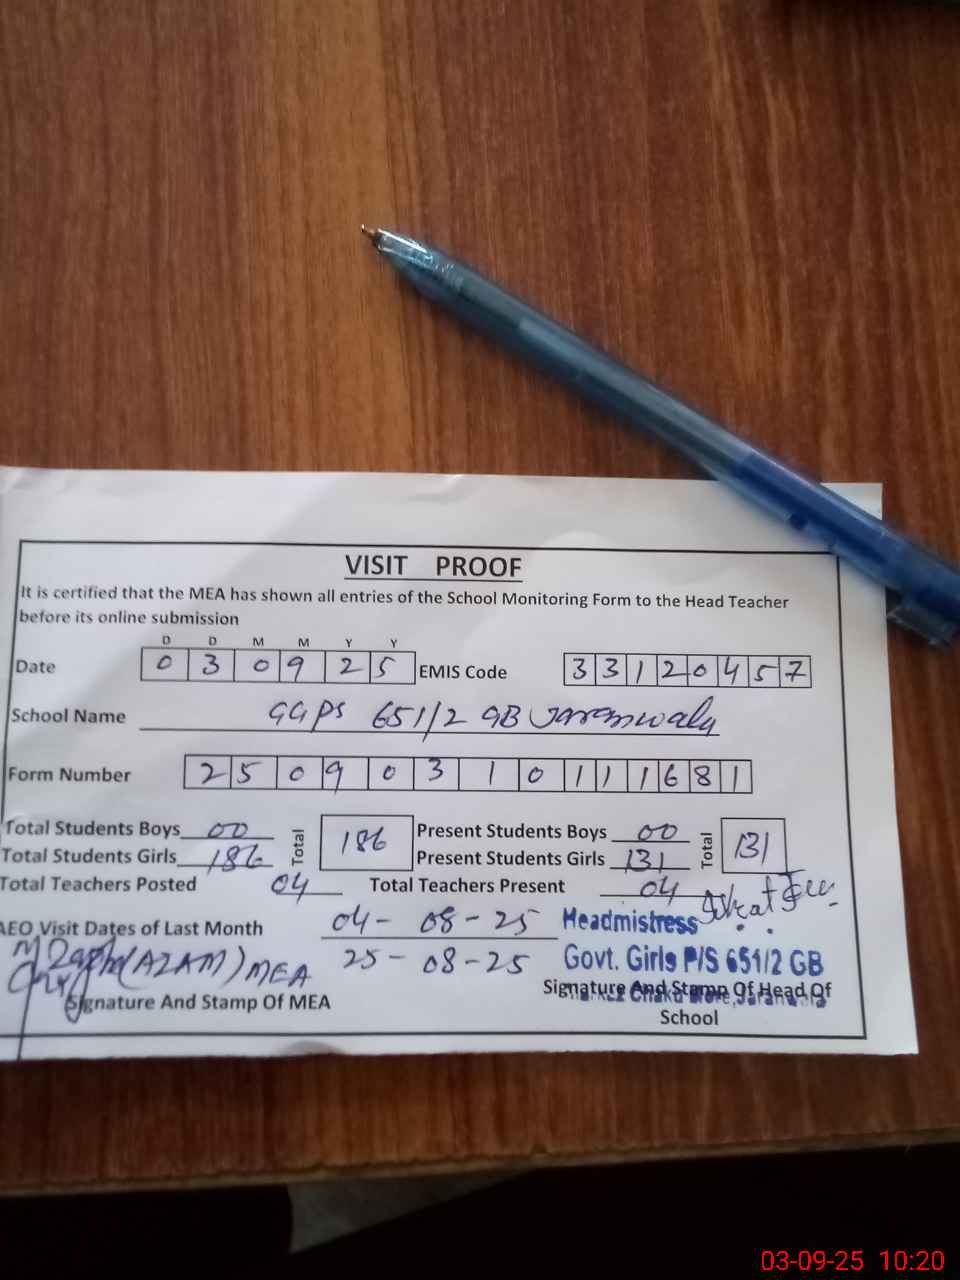 VISIT PROOF
It is certified that the MEA has shown all entries of the School Monitoring Form to the Head Teacher
before its online submission
D D M M Y Y
Date 0 3 0 9 2 5 EMIS Code 3 3 1 2 0 4 5 7
School Name GGPS 651/2 GB Jaranwala
Form Number 2 5 0 9 0 3 1 0 1 1 1 6 8 1
Total Students Boys 00 Total 186 Present Students Boys 00 Total 131
Total Students Girls 186 Present Students Girls 131
Total Teachers Posted 04 Total Teachers Present 04
AEO Visit Dates of Last Month 04-08-25 Headmistress
(AZAM) MEA 25-08-25 Govt. Girls P/S 651/2 GB
Signature And Stamp Of MEA Signature And Stamp Of Head Of
School
03-09-25 10:20